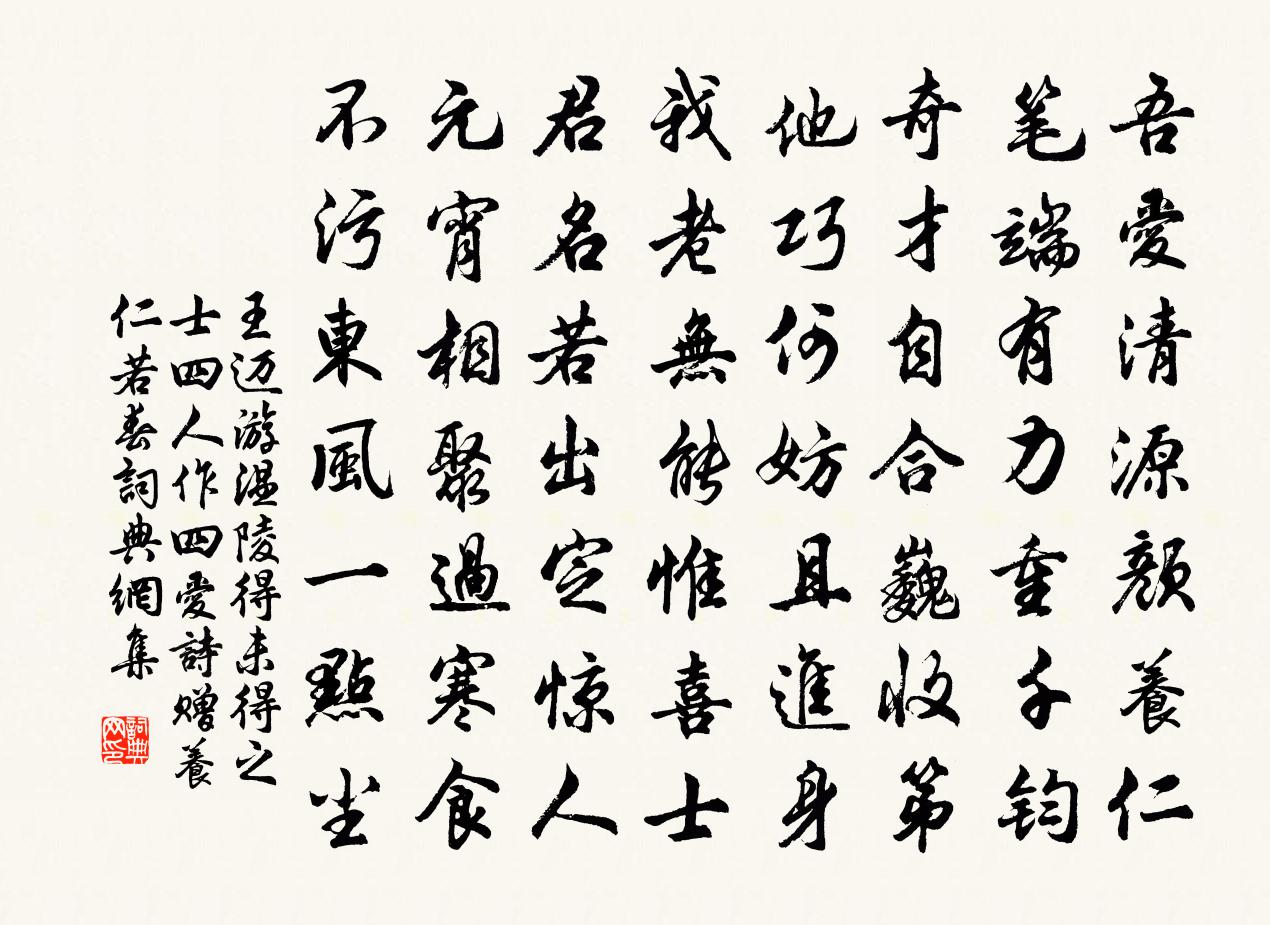 吾愛清源顔養仁
笔端有力重千鈞
奇才自合巍收第
他巧何妨且進身
我老無能惟喜士
君名若出定惊人
元宵相聚過寒食
不污東風一點尘
王迈游温陵得未得之
士四人作四愛詩赠養
仁若春詞典網集
詞典网印